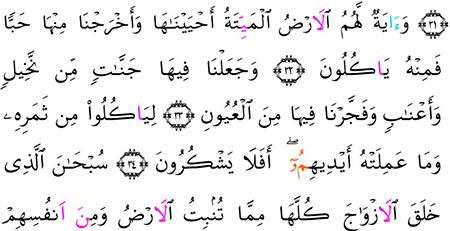 ﴿٣١﴾ وَءَايَةٌ لَّهُمُ اُ۬لَارْضُ اُ۬لْمَيِّتَةُ أَحْيَيْنَٰهَا وَأَخْرَجْنَا مِنْهَا حَبّاٗ
فَمِنْهُ يَاكُلُونَ ﴿٣٢﴾ وَجَعَلْنَا فِيهَا جَنَّٰتٖ مِّن نَّخِيلٖ
وَأَعْنَٰبٖ وَفَجَّرْنَا فِيهَا مِنَ اَ۬لْعُيُونِ ﴿٣٣﴾ لِيَاكُلُواْ مِن ثَمَرِهِۦ
وَمَا عَمِلَتْهُ أَيْدِيهِمُۥٓۖ أَفَلَا يَشْكُرُونَ ﴿٣٤﴾ سُبْحَٰنَ اَ۬لَّذِي
خَلَقَ اَ۬لَازْوَٰجَ كُلَّهَا مِمَّا تُنۢبِتُ اُ۬لَارْضُ وَمِنَ اَنفُسِهِمْ